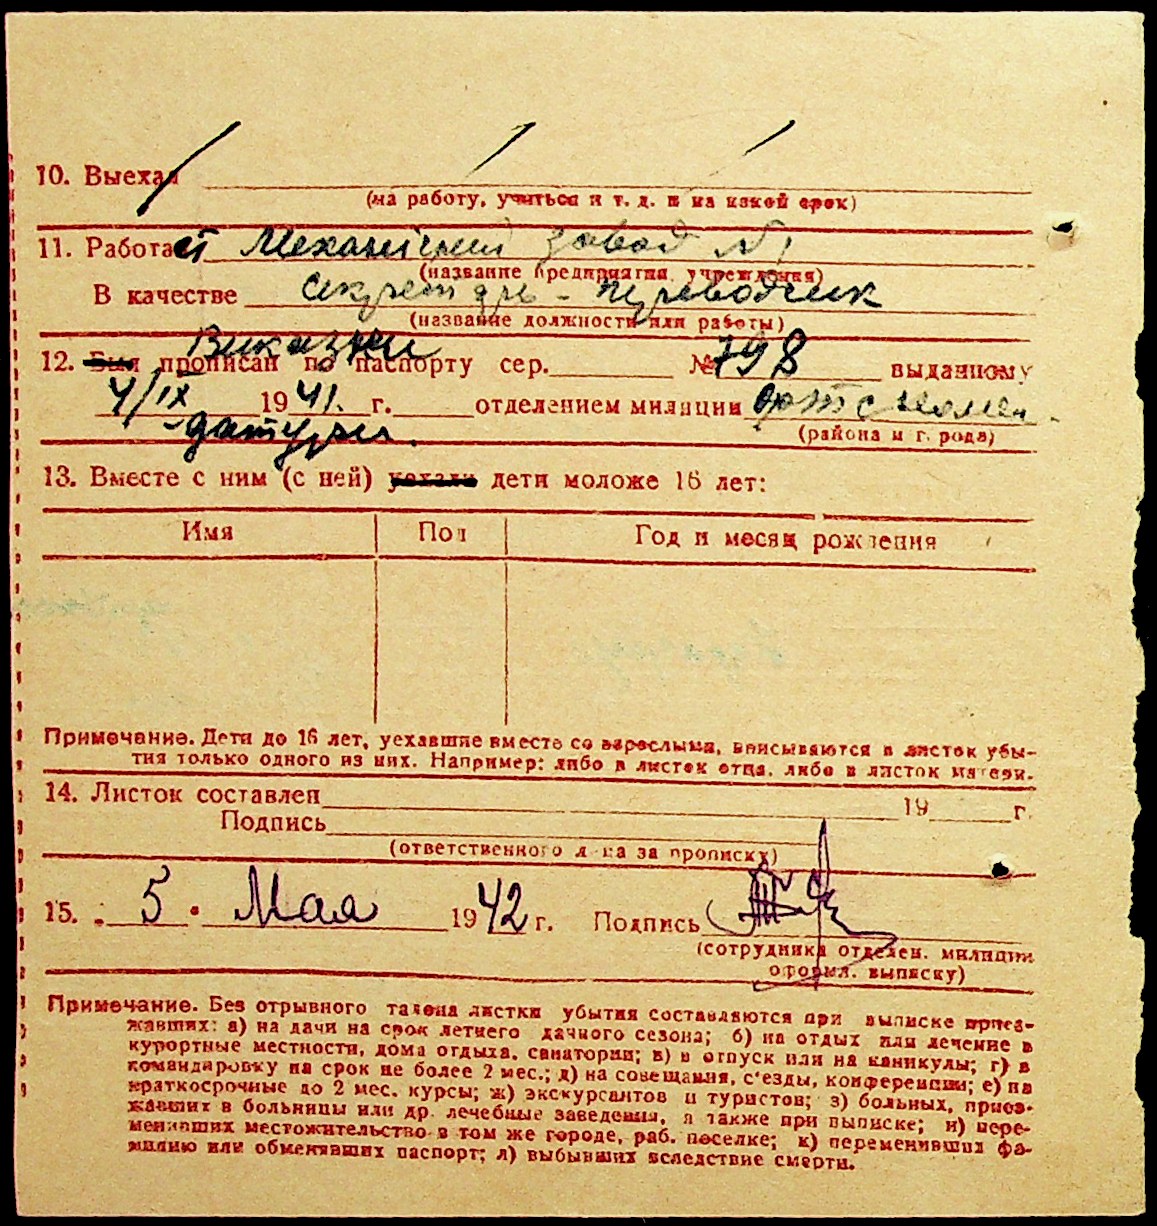 10. Выехал
(на работу, учиться и т. д. и на какой срок)
11. Работает Механический завод № 1
(название предприятия, учреждения)
В качестве секретарь - переводчик
(название должности или работы)
12. Был прописан по паспорту сер. № 798 выданному
4/IX 1941. г. отделением милиции
(района и г. рода)
13. Вместе с ним (с ней) уехали дети моложе 16 лет:
Имя Пол Год и месяц рождения
Примечание. Дети до 16 лет, уехавшие вместе со взрослыми, вписываются в листок убы-
тия только одного из них. Например: либо в листок отца, либо в листок матери.
14. Листок составлен 19 г.
Подпись
(ответственного лица за прописку)
15. 5 Мая 1942 г. Подпись
(сотрудника отделен. милиции
оформл. выписку)
Примечание. Без отрывного талона листки убытия составляются при выписке приез-
жавших: а) на дачи на срок летнего дачного сезона; б) на отдых или лечение в
курортные местности, дома отдыха, санатории; в) в отпуск или на каникулы; г) в
командировку на срок не более 2 мес.; д) на совещания, с'езды, конференции; е) на
краткосрочные до 2 мес. курсы; ж) экскурсантов и туристов; з) больных, приез-
жавших в больницы или др. лечебные заведения, а также при выписке; и) пере-
менивших местожительство в том же городе, раб. поселке; к) переменивших фа-
милию или обменявших паспорт; л) выбывших вследствие смерти.